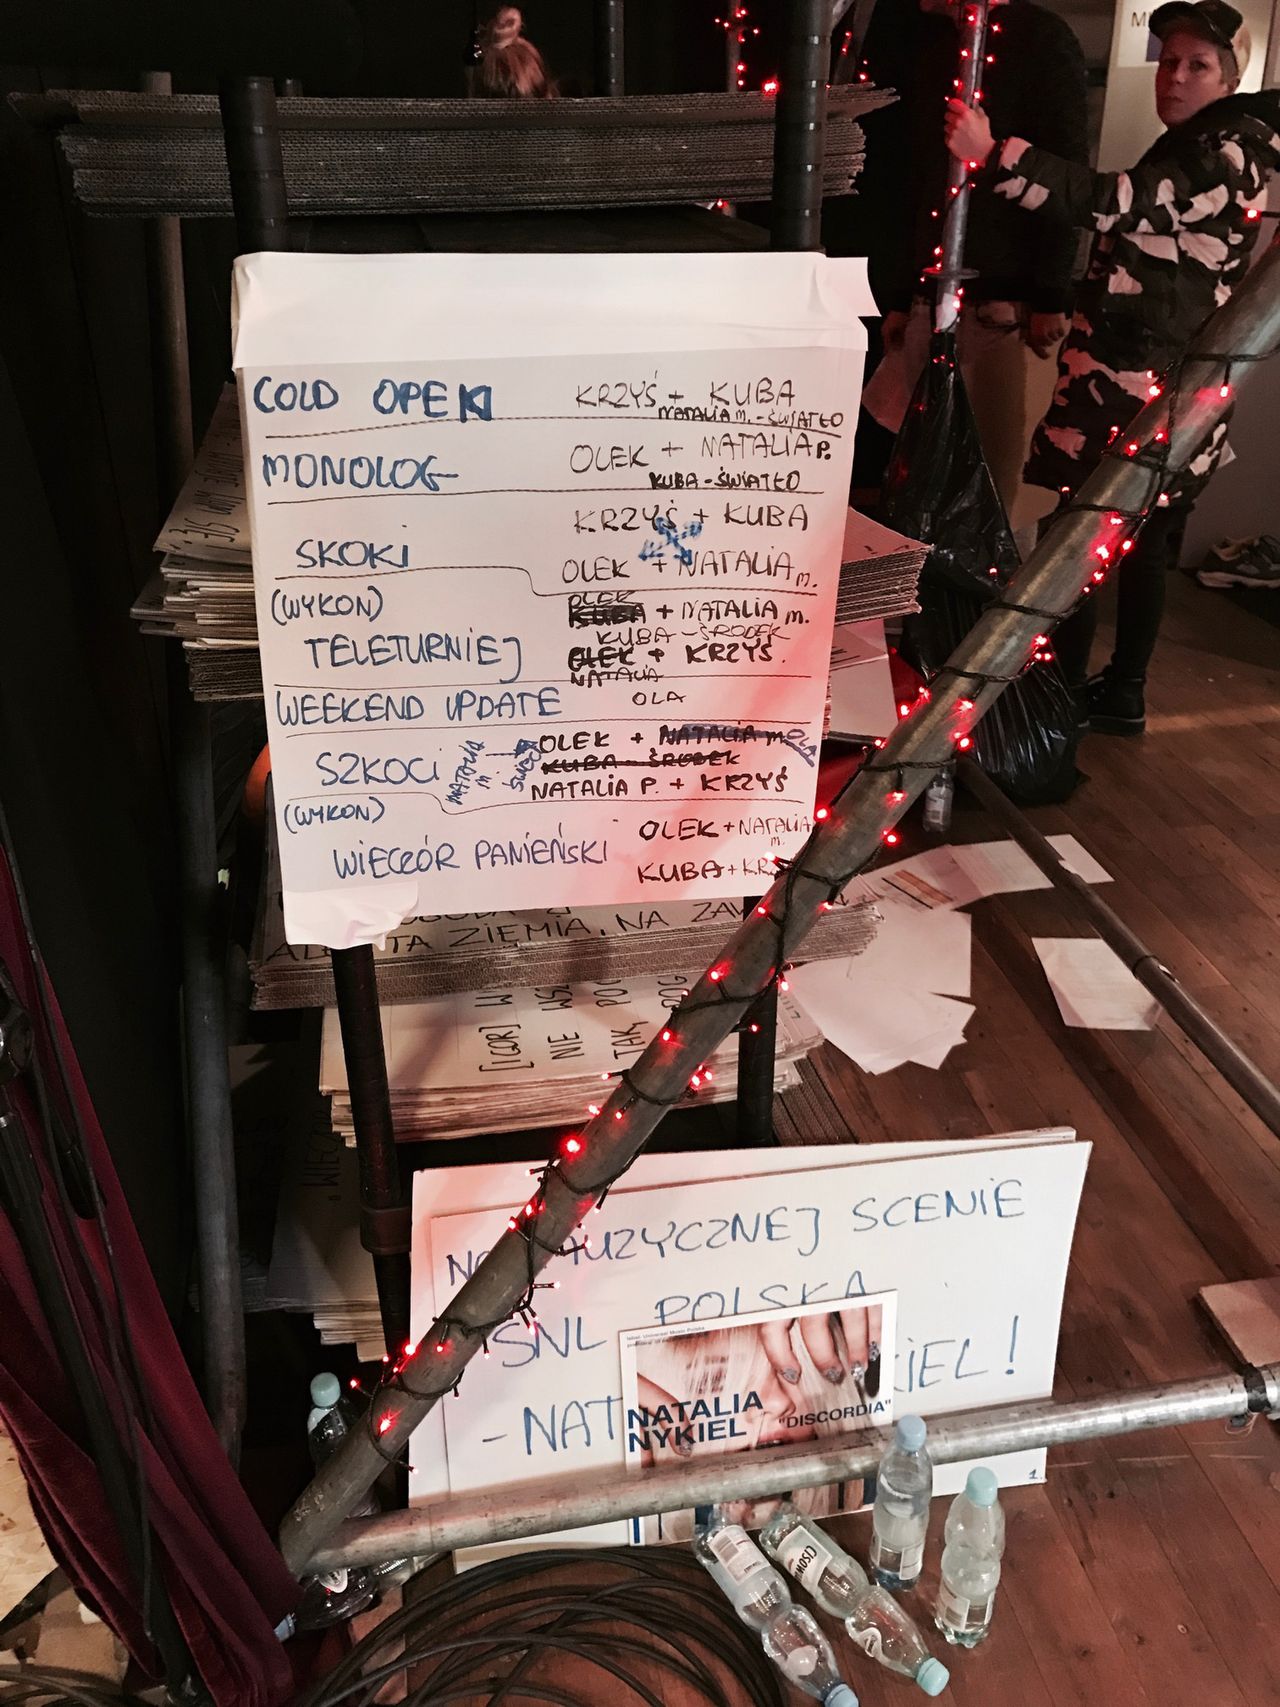 COLD OPEN KRZYŚ + KUBA
NATALIA M. - ŚWIATŁO
MONOLOG OLEK + NATALIA P.
KUBA - ŚWIATŁO
KRZYŚ + KUBA
SKOKI
OLEK + NATALIA M.
(WYKON) OLEK
KUBA + NATALIA M.
KUBA - ŚRODEK
TELETURNIEJ OLEK + KRZYŚ.
NATALIA
WEEKEND UPDATE OLA
OLEK + NATALIA M. OLA
SZKOCI NATALIA M KUBA - ŚRODEK
NATALIA P. + KRZYŚ
(WYKON)
OLEK + NATALIA M.
WIECZÓR PANIEŃSKI
KUBA + KRZ
TA ZIEMIA, NA ZAW
[IGOR]
NIE WSZ
TAK
NA MUZYCZNEJ SCENIE
SNL POLSKA
- NAT KIEL!
1.
Universal Music Polska
NATALIA
NYKIEL
"DISCORDIA"
CISOW